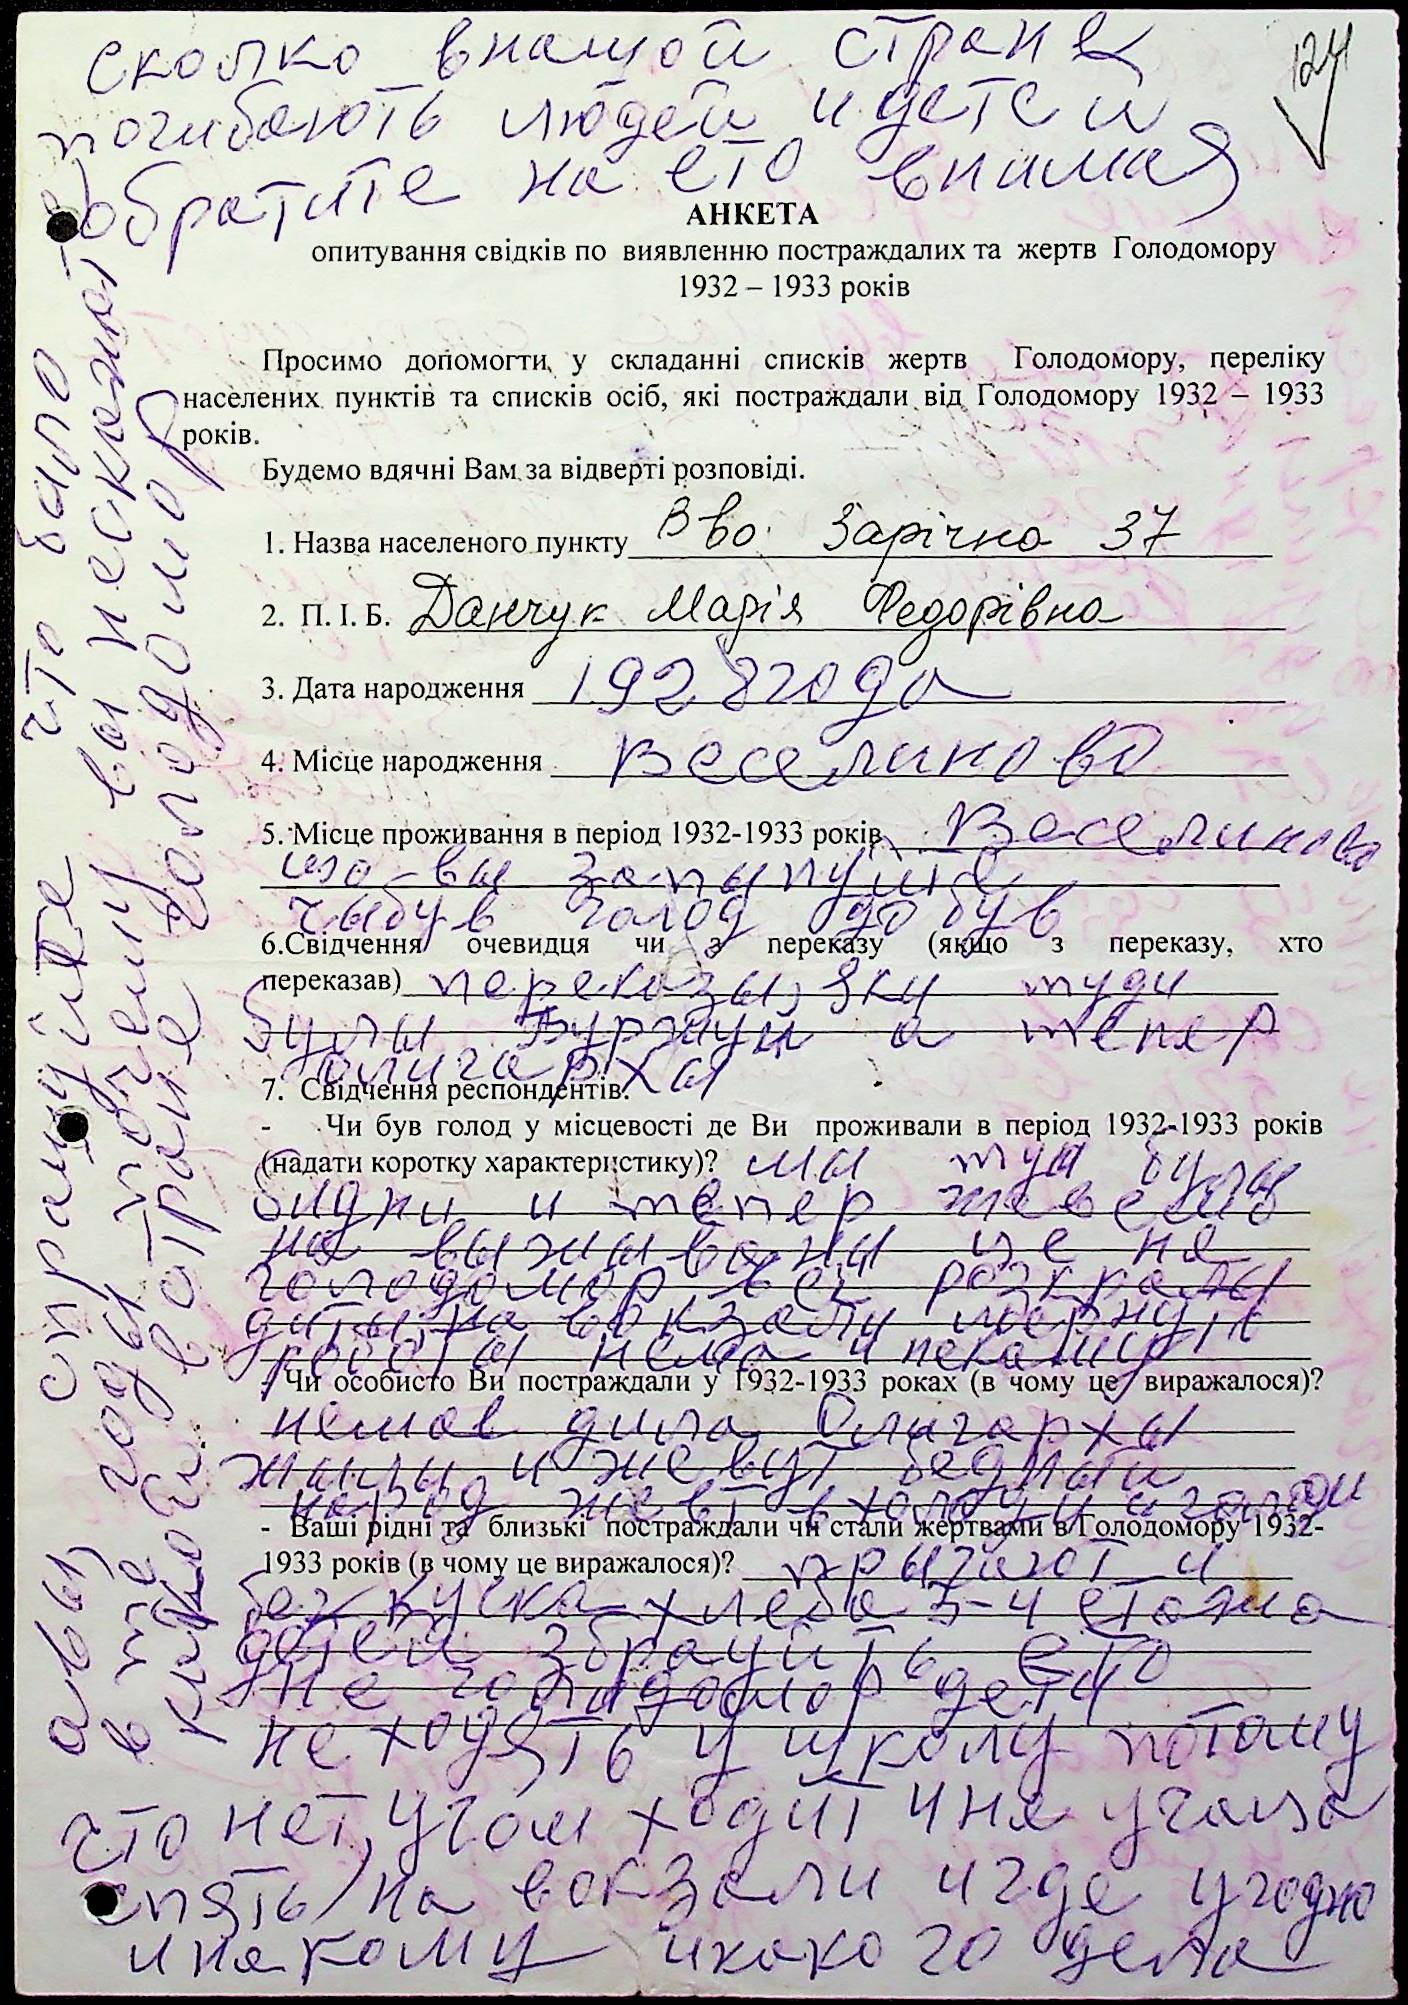 сколко внашой стране
124
погибають людей и детей
обратите на ето внимая
АНКЕТА
опитування свідків по виявленню постраждалих та жертв Голодомору
1932 – 1933 років
Просимо допомогти у складанні списків жертв Голодомору, переліку
населених пунктів та списків осіб, які постраждали від Голодомору 1932 – 1933
років.
Будемо вдячні Вам за відверті розповіді.
1. Назва населеного пункту Зарічна 37
2. П. І. Б. Данчук Марія Федорівна
3. Дата народження 1928 года
4. Місце народження Веселиново
5. Місце проживання в період 1932-1933 років Веселинова
шо вы
чы був голод до був
6.Свідчення очевидця чи з переказу (якщо з переказу, хто
переказав) туди
булы Буржуи а тепер
олигархы
7. Свідчення респондентів.
- Чи був голод у місцевості де Ви проживали в період 1932-1933 років
(надати коротку характеристику)? мы туи булы
бидни и тепер
на выживаны це не
голодомор все розкралы
диты на вокзали
роботы нема и
- Чи особисто Ви постраждали у 1932-1933 роках (в чому це виражалося)?
дила Олигархы
жылы и жевут бедный
народ в холоду и голоди
- Ваші рідні та близькі постраждали чи стали жертвами в Голодомору 1932-
1933 років (в чому це виражалося)? прыгают и
без куска хлеба 3-4 етажа
детей ето
не голодомор дети
не ходять у школу потому
что нет ходит и не
спять на вокзали и где угодно
и не кому никакого дела
авы спрашуйте что было
в те годы почему вы нескажете
какой встране Голодомор